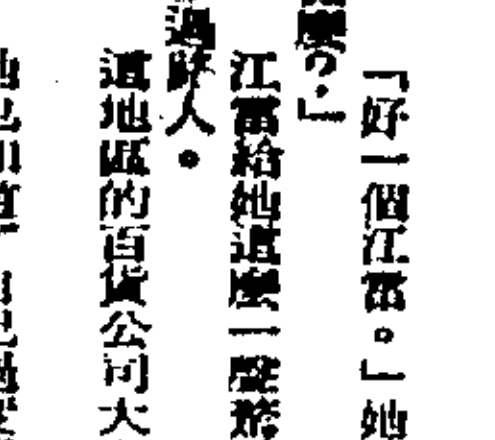 「好一個江雷。」她
麼？」
江雷給她這麼一聲
過路人。
這地區的百貨公司大